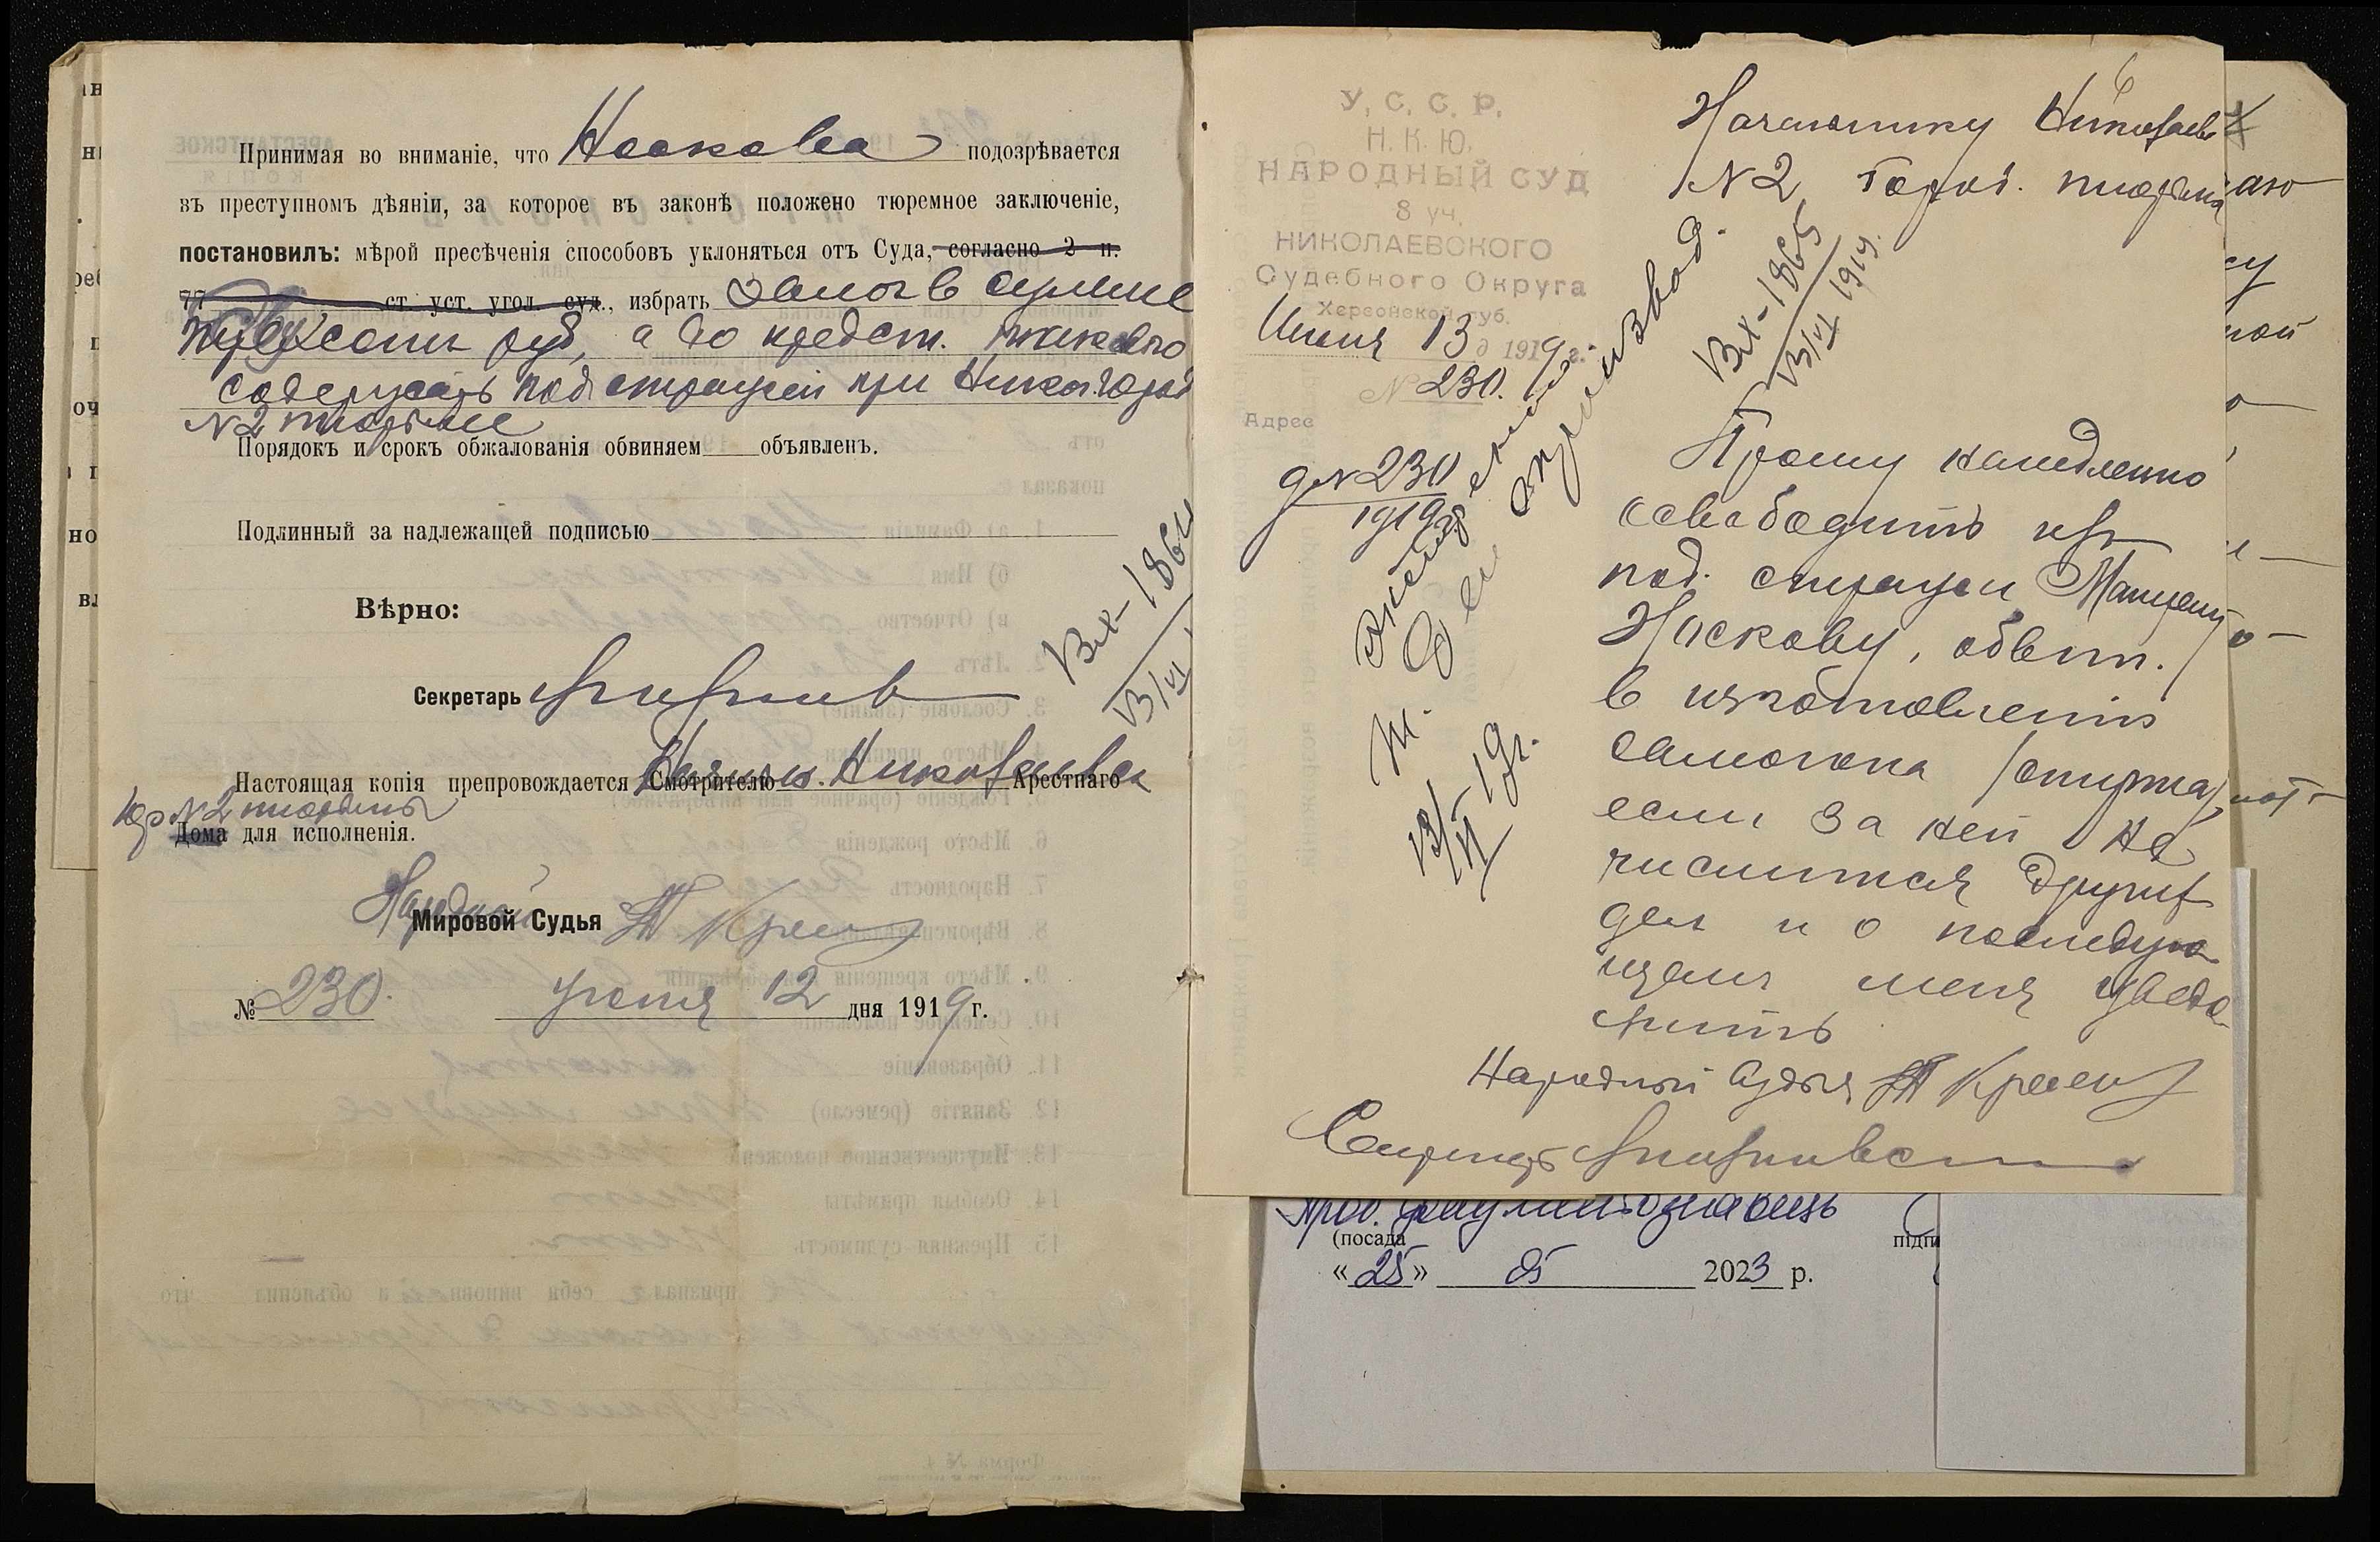 Принимая во вниманіе, что Носкова подозрѣвается
въ преступномъ дѣяніи, за которое въ законѣ положено тюремное заключеніе,
постановилъ: мѣрой пресѣченія способовъ уклоняться отъ Суда, согласно 2 п.
77 ст. уст. угол. суд., избрать залог в сумме
сот руб, а до предст. такового
содержать под стражей при Никол. город
N2 тюрьме
Порядокъ и срокъ обжалованія обвиняем объявленъ.
Подлинный за надлежащей подписью
Вх-1864
13/VI
Вѣрно:
Секретарь
Настоящая копія препровождается Смотрителю Началь. Николаевск Арестнаго
гор N2 тюрьмы
Дома для исполненія.
Народный
Мировой Судья
№ 230. июня 12 дня 1919 г.
6
Начальнику Николаевс
N2 город. тюрьмы
У. С. С. Р.
Н. К. Ю.
НАРОДНЫЙ СУД
8 уч.
НИКОЛАЕВСКОГО
Судебного Округа
Херсонской губ.
Июня 13 д 1919 г.
№ 230.
Адрес
д N 230
1919 г.
Вх-1865
13/VI 1919.
13/VI 19 г.
Прошу немедленно
освободить из
под. стражи
Носкову, обвин.
в изготовлении
самогона /спирта/
если за ней не
числится других
дел и о последую
щем меня уведо
мить
Народный Судья
Секретарь
(посада
підпи
« 25 » 05 2023 р.